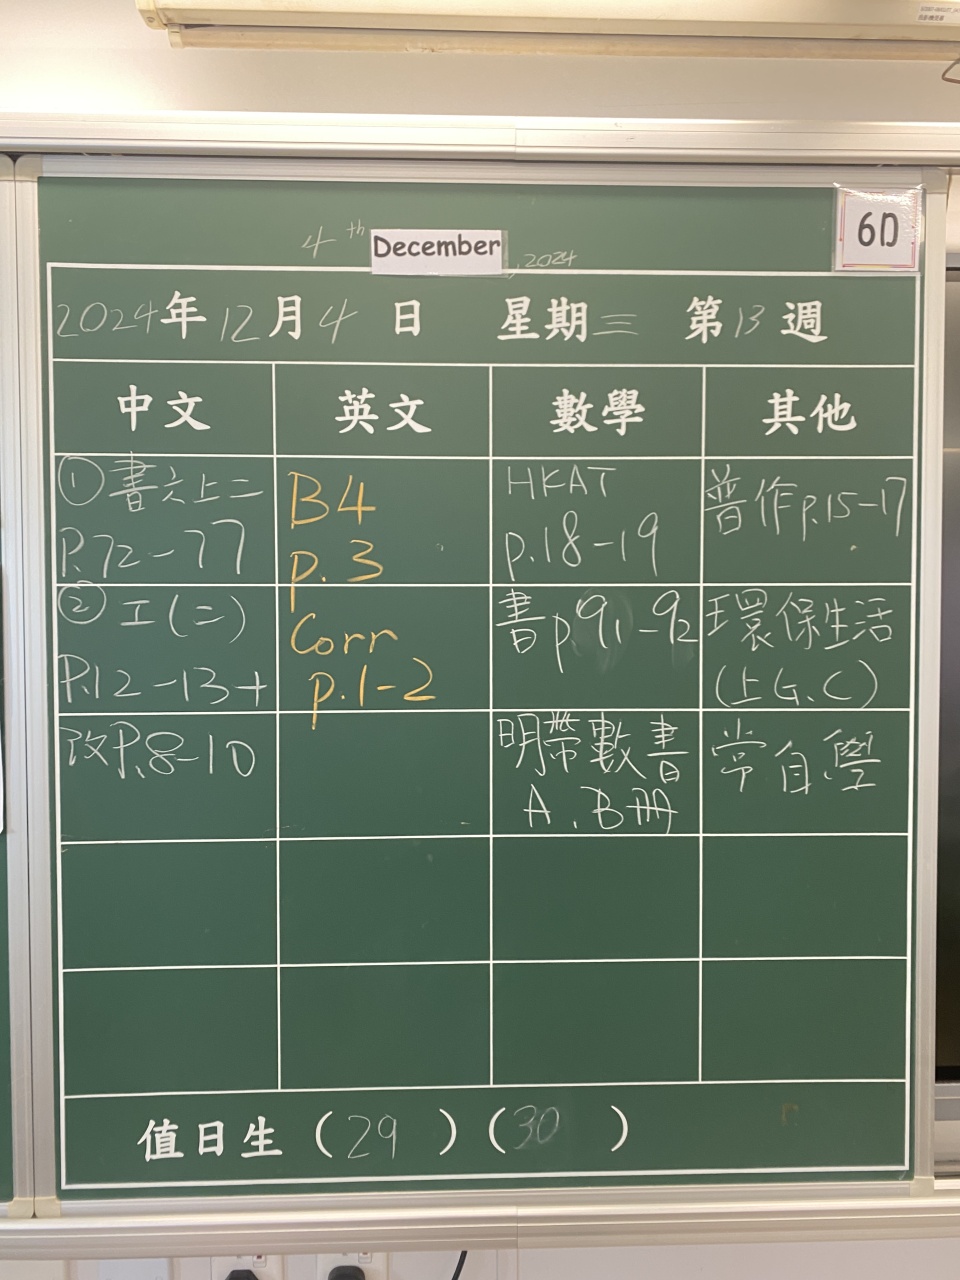 6D
4th December, 2024
2024年12月4日 星期三 第13週
中文 英文 數學 其他
①書六上二
P.72-77
②工(二)
P.12-13+
改P.8-10
B4
p.3
Corr
p.1-2
HKAT
p.18-19
書p91-92
明帶數書
A、B冊
普作p.15-17
環保生活
(上G.C)
常自學
值日生(29)(30)